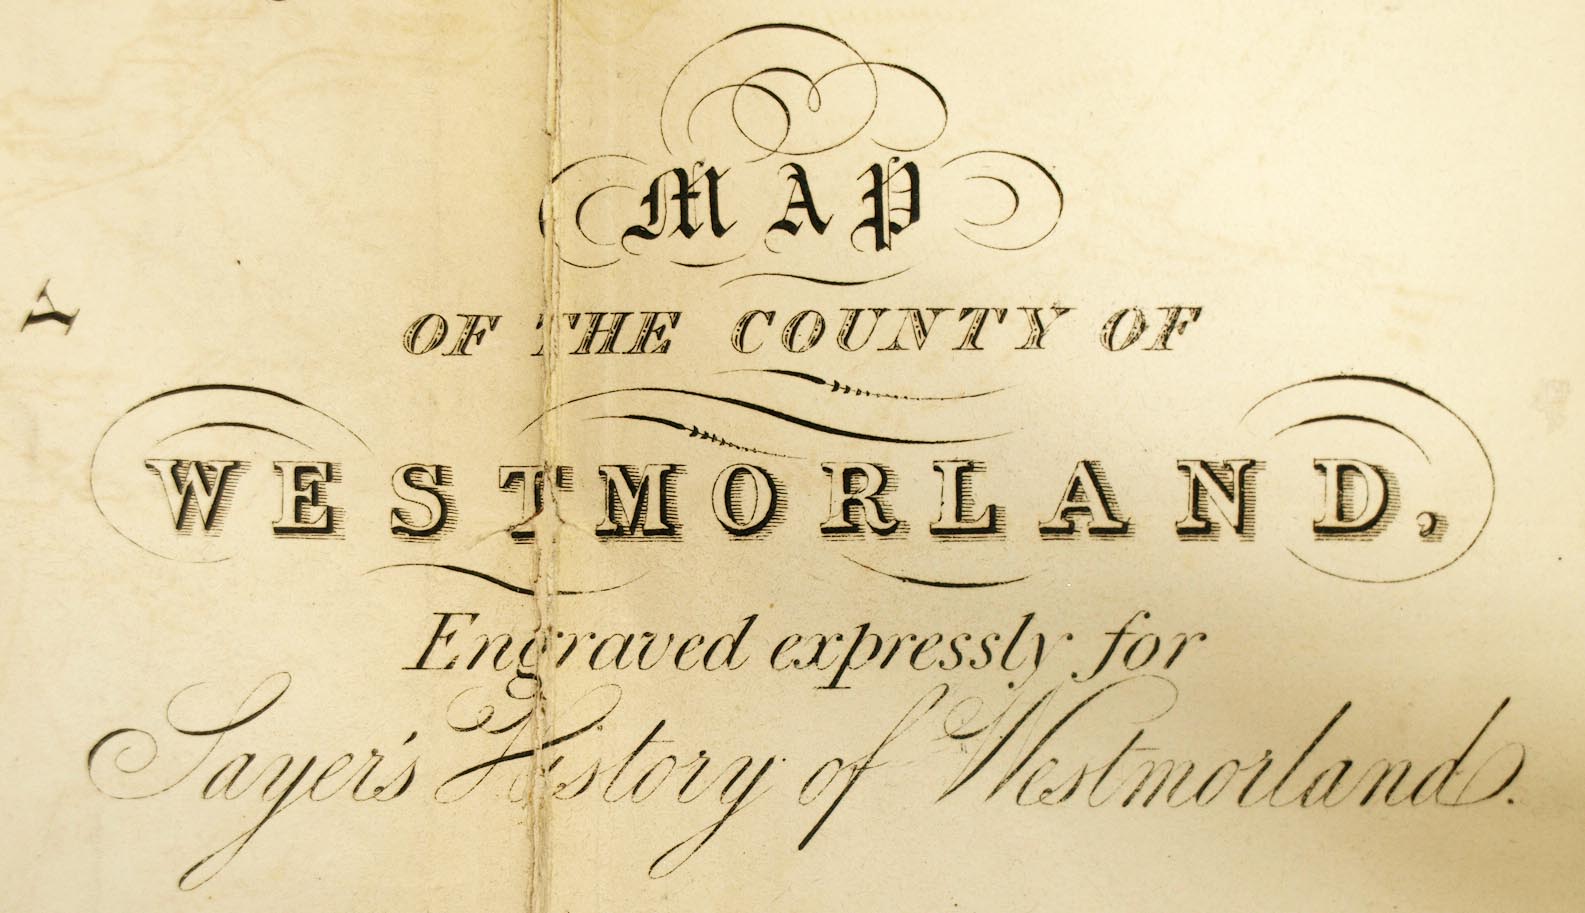 MAP
OF THE COUNTY OF
WESTMORLAND,
Engraved expressly for
Sayer's History of Westmorland.
Y